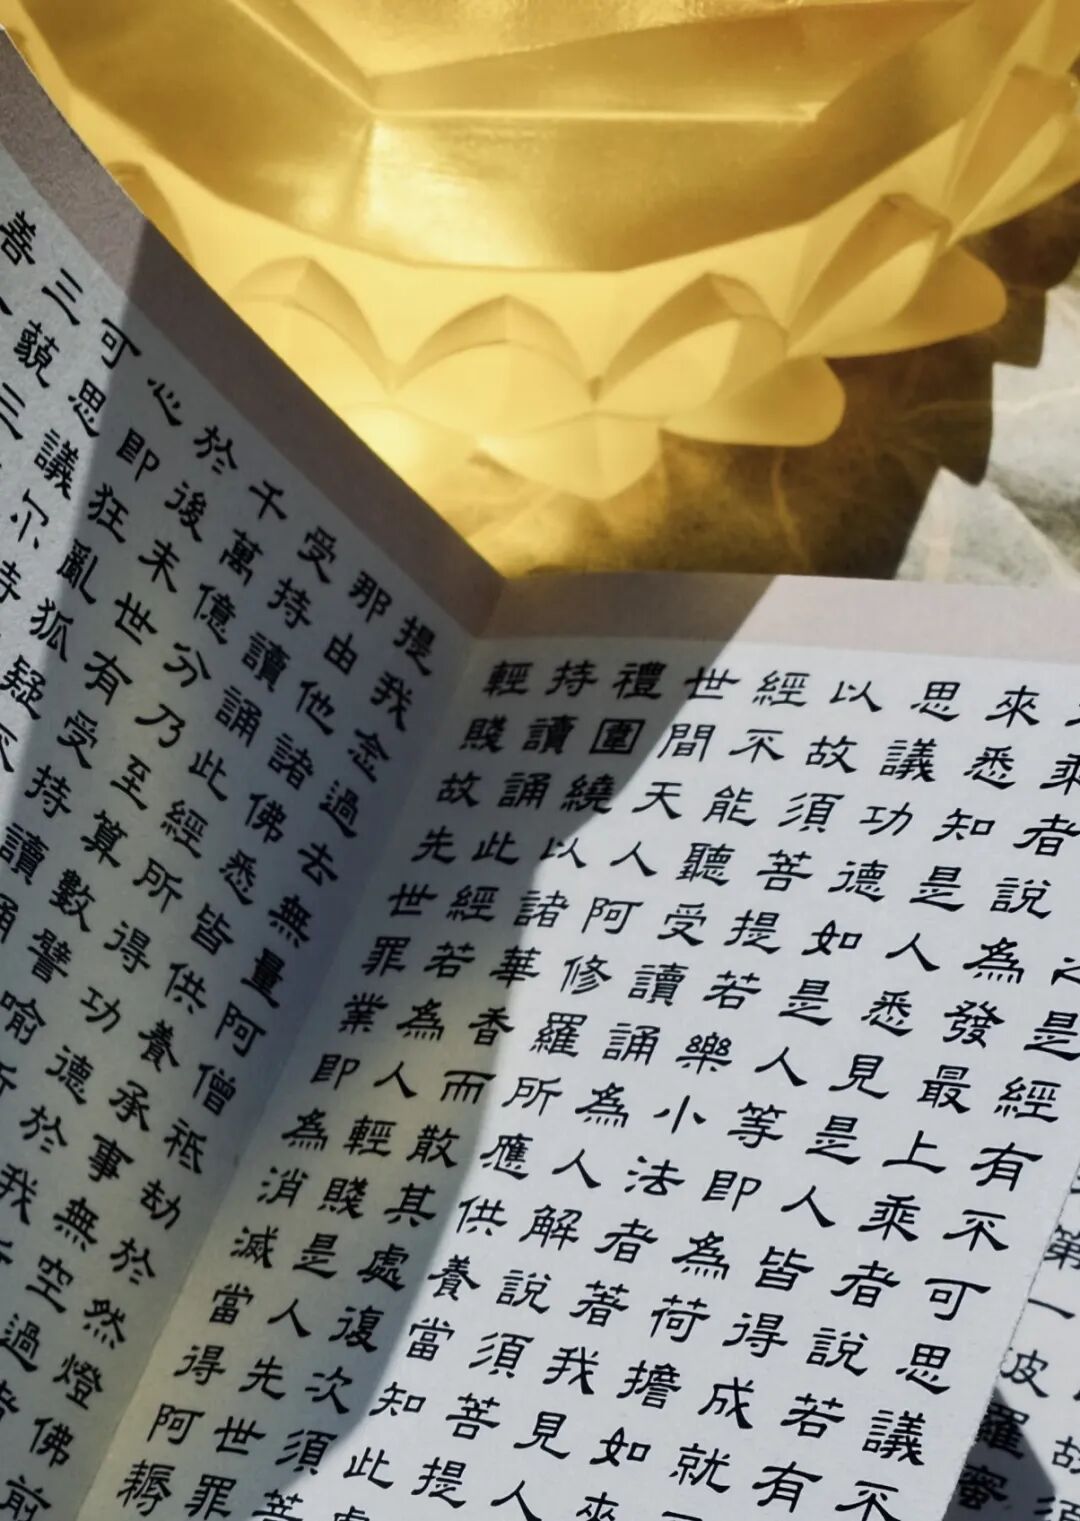 第一波羅蜜
是經有不可思議不
乘者說為發最上乘者說若有
來悉知是人悉見是人皆得成就
思議功德如是人等即為荷擔如來
以故須菩提若樂小法者著我見人
經不能聽受讀誦為人解說須菩提
世間天人阿修羅所應供養當知此處
禮圍繞以諸華香而散其處復次須菩
持讀誦此經若為人輕賤是人先世罪
輕賤故先世罪業即為消滅當得阿耨
提我念過去無量阿僧祇劫於然燈佛前
那由他諸佛悉皆供養承事無空過者
受持讀誦此經所得功德於我
千萬億分乃至算數譬喻所
於後末世有受持讀誦
心即狂亂狐疑不
可思議尔
三藐三
善